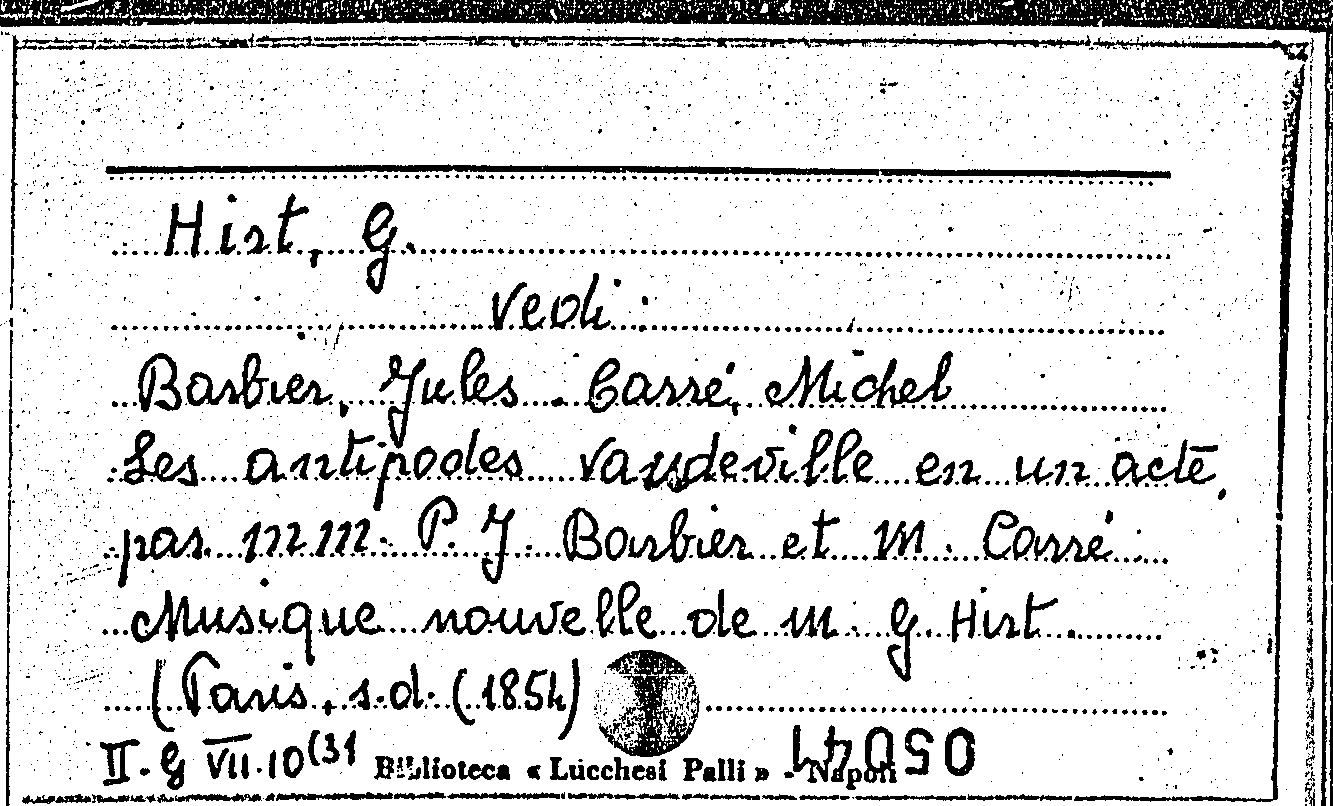 Hirt, G.
vedi:
Barbier, Jules. Carré, Michel
Les antipodes vaudeville en un acte,
par MM. P. J. Barbier et M. Carré
Musique nouvelle de M. G. Hirt.
(Paris, s.d. (1854)
II. G VII. 10(31 Biblioteca « Lucchesi Palli » - Napoli
05044